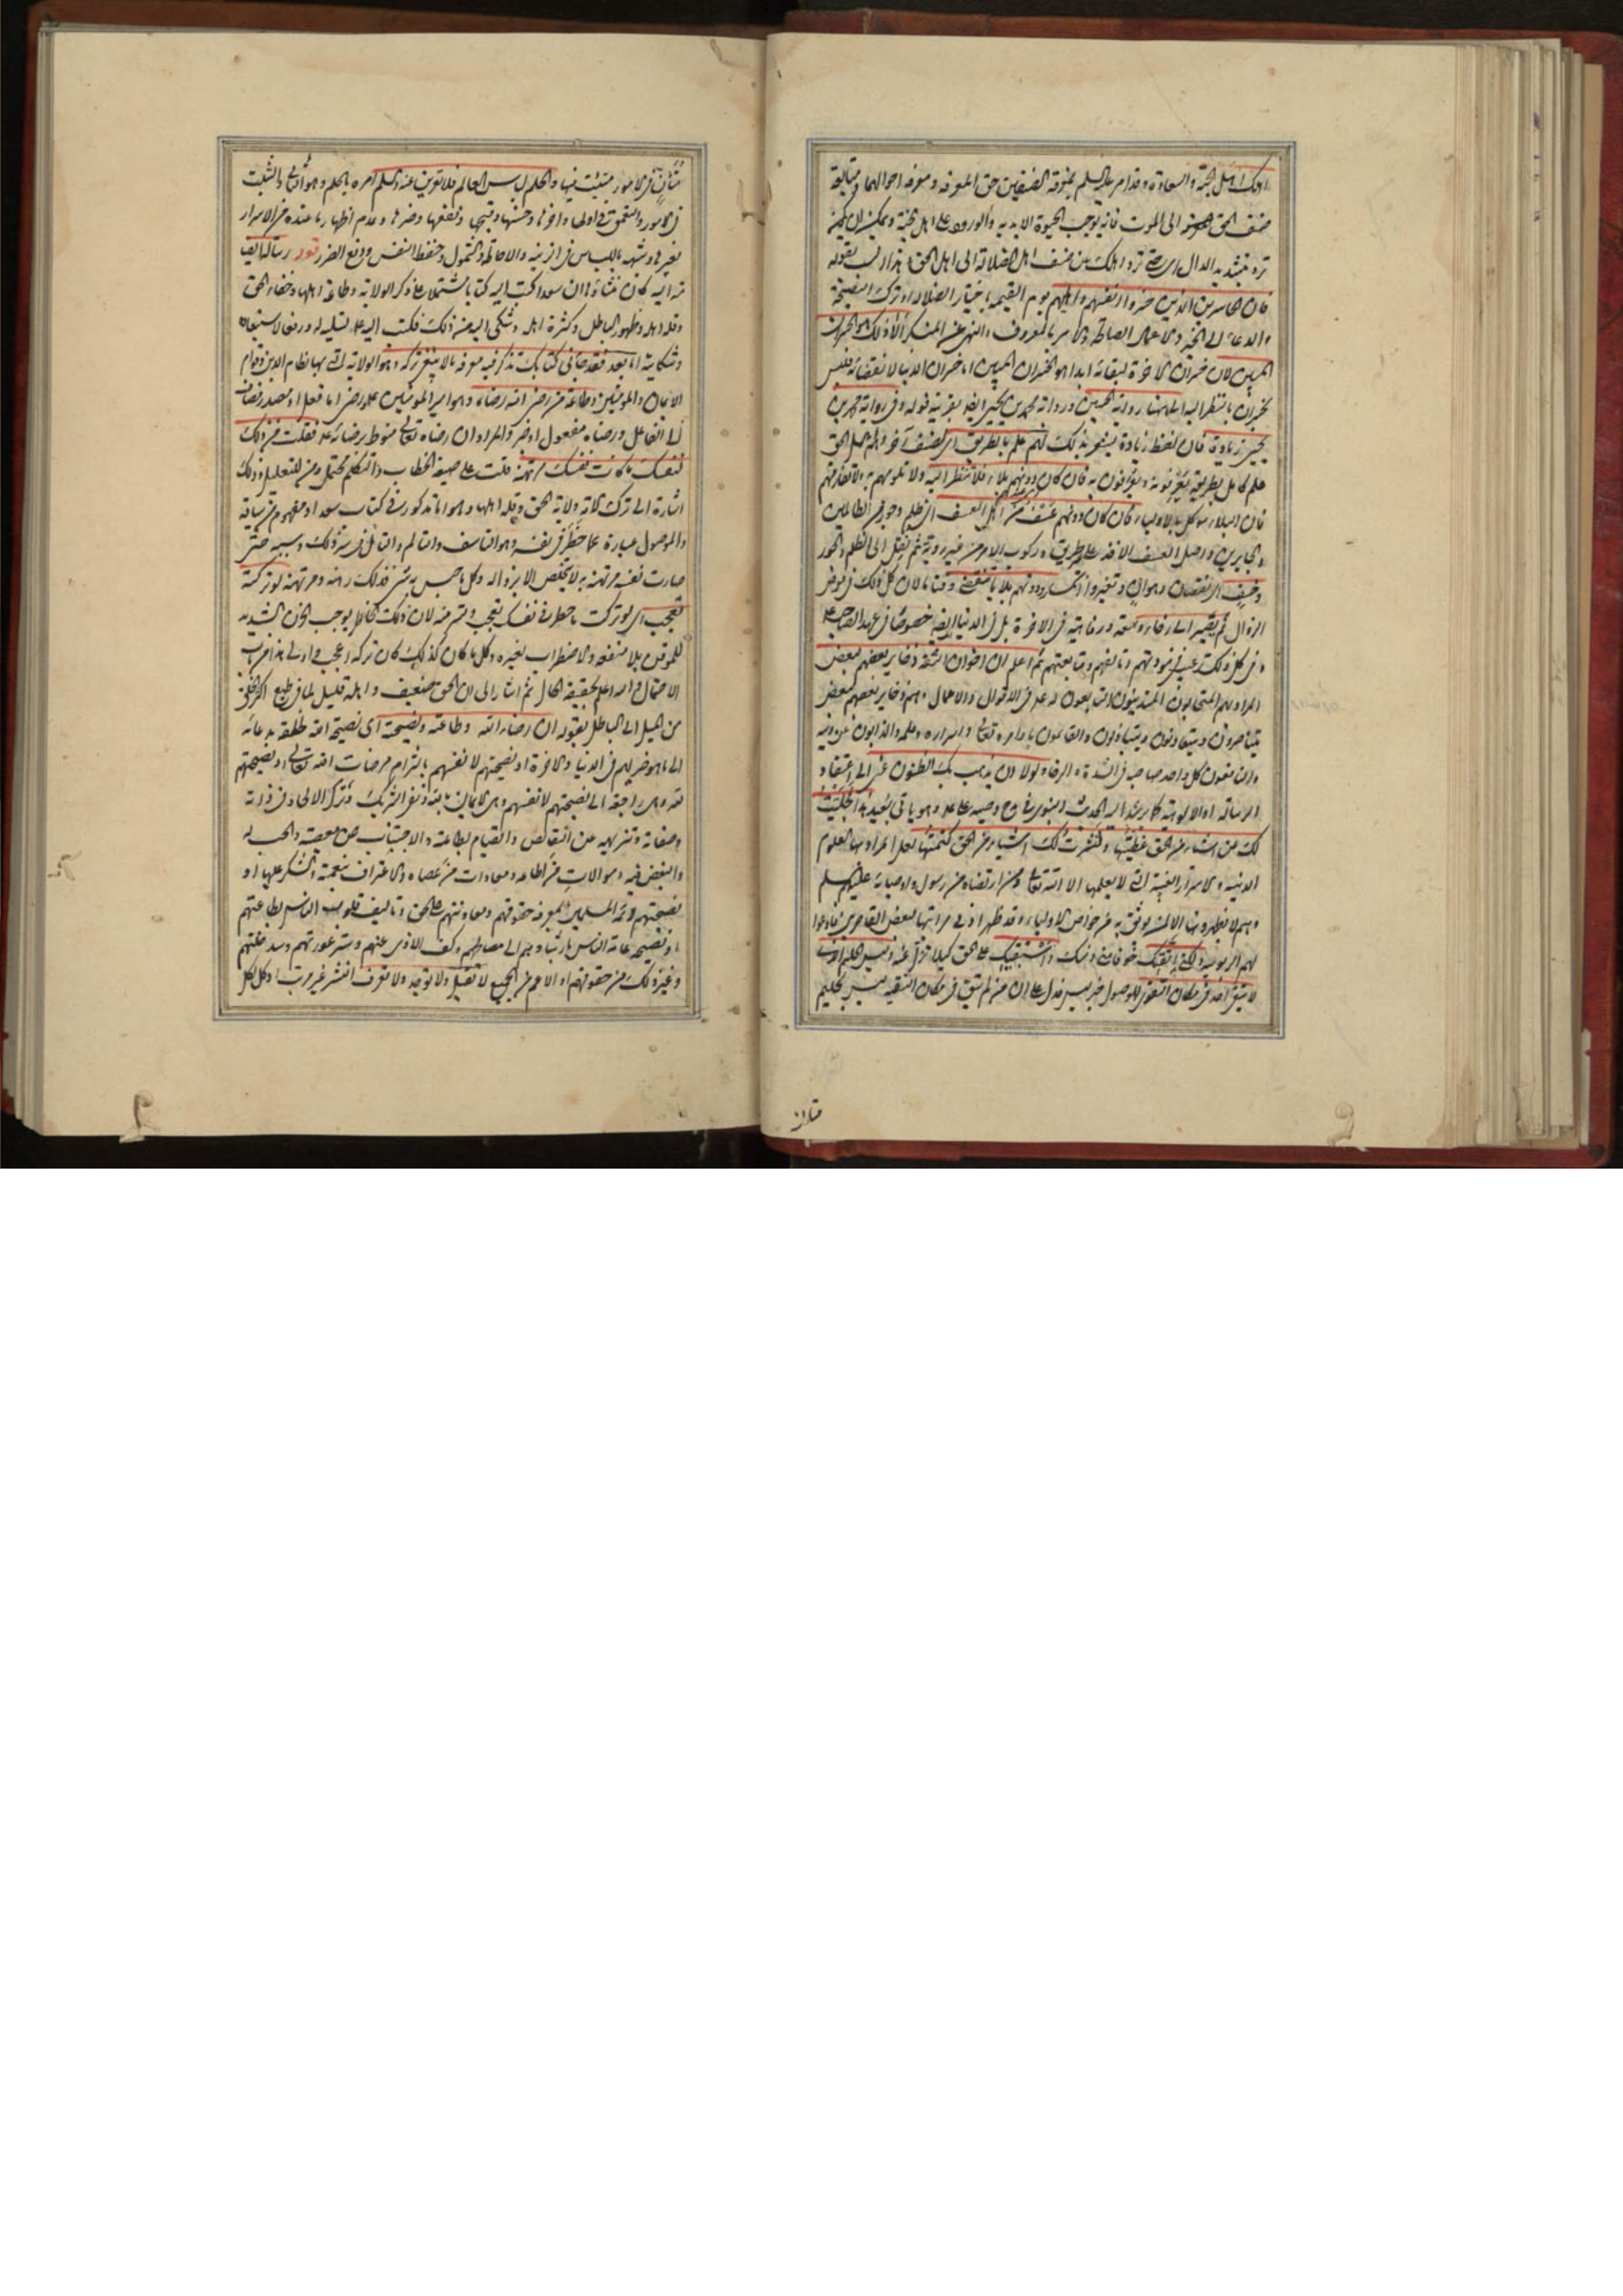 اولئك اهل الجنة والسعادة وقد امر عليه السلم بمعرفة الصنفين حق المعرفة ومعرفة احوالهما ومتابعة
صنف الحق الى الموت فانه يوجب الحيوة الابدية والورود على اهل الجنة ويمكن ان يكون
ترد بتشديد الدال اى حتى ترد اهلك من صنف اهل الضلالة الى اهل الحق
فان الخاسرين الذين خسروا انفسهم واهليهم يوم القيمة باختيار الضلالة وترك النصيحة
والدعاء الى الخير والاعمال الصالحة والامر بالمعروف والنهى عن المنكر الا ذلك هو الخسران
المبين لان خسران الاخرة لبقائه ابدا هو الخسران المبين اما خسران الدنيا لانقضائه فليس
بخسران بالنظر اليه الى هنا رواية الحسين ورواية محمد بن يحيى ايضا بقرينة قوله وفى رواية محمد بن
يحيى زيادة فان لفظ زيادة يشعر بذلك لهم علم بالطريق اى لصنف آخر وهم اهل الحق
علم كامل بطريق يعرفونه ويعرفون به فان كان دونهم بلاء فلا تنظر اليه ولا تلومهم به ولا تفارقهم
فان البلاء موكل بالاولياء فان كان دونهم عسف من اهل العسف اى ظلم وجور من الظالمين
والجابرين واصل العسف الاخذ على غير طريق او ركوب الامر من غير روية ثم نقل الى الظلم والجور
وخسف اى نقصان وهوان وتغير وانكسار ودونهم بلايا تنقضى وقتا ما لان كل ذلك فى معرض
الزوال ثم تصير الى رخاء وسعة ورفاهية فى الاخرة بل فى الدنيا ايضا خصوصا فى عهد الصاحب ع
وفى كل ذلك ترغيب فى مودتهم وتابعهم ومتابعتهم ثم اعلم ان اخوان الثقة ذخاير بعضهم لبعض
المراد بهم المتحابون المتدينون التابعون له عم فى الاقوال والاعمال وهم ذخاير بعضهم لبعض
يتناصرون ويتعاونون ويتباذلون والقائمون باوامره تعالى واسراره وعلمه والذابون عن دينه
والنافعون كل واحد صاحبه فى الشدة والرخاء ولولا ان يذهب بك الظنون عنى الى اعتقاد
الرسالة او الالوهية كما يرشد اليه الحديث النبوى فى مدح وصيه على عم وهو ياتى بعيد هذا لجليت
لك عن اشياء من الحق غطيتها ولنشرت لك اشياء من الحق كتمتها لعل المراد بها العلوم
الدينية والاسرار الغيبية التى لا يعلمها الا الله تعالى ومن ارتضاه من رسول واوصيائه عليهم السلم
وهم لا يظهرونها الا لمن يوثق به من خواص الاولياء وقد ظهر ادنى مراتبها لبعض القاصرين فادعوا
لهم الربوبية ولكنى اتقيك خوفا منى ومنك واستبقيك على الحق كيلا تزل عنه وليس الحليم الذى
لا يتقى احدا فى مكان التقوى الموصول خبر ليس فدل على ان من لم يتق فى مكان التقية ليس بحليم
متان
متأن فى الامور متثبت فيها والحلم لباس العالم فلا تعرين عنه والسلم امره بالحلم وهو التأنى والتثبت
فى الامور والتعمق فى اولها واخرها وحسنها وقبحها ونفعها وضرها وعدم اظهار ما عنده من الاسرار
بغيرها وشبهه باللباس فى الزينة والاحاطة والشمول وحفظ النفس ودفع الضرر قوله رسالة ايضا
منه اليه كان منشاؤها ان سعدا كتب اليه كتابا مشتملا على ذكر الولاية وطاعة اهلها وخفاء الحق
وقلة اهله وظهور الباطل وكثرة اهله وشكى اليه من ذلك فكتب اليه عم تسلية له ورفعا لاستبعاده
وشكايته اما بعد فقد جاءنى كتابك تذكر فيه معرفة ما لا ينبغى تركه وهو الولاية التى بها نظام الدين وقوام
الايمان والمؤمنين وطاعة من رضى الله رضاه وهو امير المؤمنين عم ورضى اما فعل او مصدر مضاف
الى الفاعل ورضاه مفعول او خبر والمراد ان رضاه تعالى منوط برضائه عم فقلت من ذلك
لنفسك ما كانت نفسك مرتهنة قلت على صيغة الخطاب والتكلم محتمل ومن للتعليل وذلك
اشارة الى ترك الامة ولاية الحق وقلة اهلها وهو اما مذكور فى كتاب سعد او مفهوم من سياقه
والموصول عبارة عما خطر فى نفسه وهو التاسف والتالم والتامل من شر ذلك وسببه حتى
صارت نفسه مرتهنة به لا يتخلص الا بزواله وكل ما حبس به شئ فذلك رهنه ومرتهنه لو تركته
تعجب اى لو تركت ما خطر فى نفسك تعجب وتتم منه لان ذلك كانه يوجب الحزن الشديد
للمؤمن بلا منفعة والاضطراب لغيره وكل ما كان كذلك كان تركه اعجب واولى
الاحتمال والله اعلم بحقيقة الحال ثم اشار الى ان الحق ضعيف واهله قليل لما فى طبع اكثر الخلق
من الميل الى الباطل بقوله ان رضاء الله وطاعته ونصيحته اى نصيحة الله لخلقه بدعائه
الى ما هو خير لهم فى الدنيا والاخرة او نصيحتهم لانفسهم بالتزام مرضات الله تعالى او نصيحتهم
لله وهى راجعة الى نصيحتهم لانفسهم وهى الايمان بالله ونفى الشريك وترك الالحاد فى ذاته
وصفاته وتنزيهه عن النقائص والقيام بطاعته والاجتناب عن معصيته والحب له
والبغض فيه وموالات من اطاعه ومعادات من عصاه والاعتراف بنعمته والشكر عليها او
نصيحتهم لائمة المسلمين بمعرفة حقوقهم ومعاونتهم على الحق وتاليف قلوب الناس بطاعتهم
او نصيحة عامة الناس بارشادهم الى مصالحهم وكف الاذى عنهم وستر عورتهم وسد خلتهم
وغير ذلك من حقوقهم او الاعم من الجميع لا تقبل ولا توجد ولا تعرف النشر غير مرتب او كل لكل